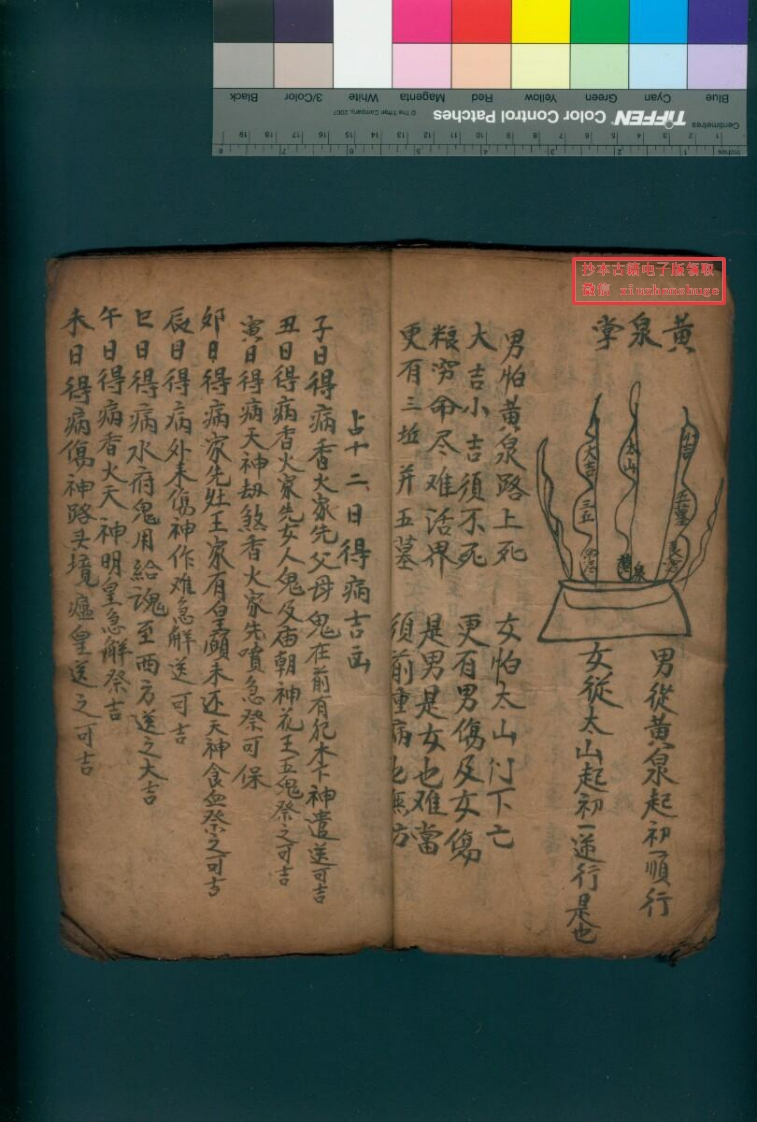 抄本古籍电子版领取
微信 xiuzhenshuge
黄泉掌
小吉
五墓
太山
黄泉
大吉
三丘
男從黄泉起初一順行
女從太山起初一逆行是也
男怕黄泉路上死 女怕太山门下亡
大吉小吉須不死 更有男傷及女傷
粮穷命尽难活界 是男是女也难當
更有三坵并五墓 須前重病也無妨
占十二日得病吉凶
子日得病香火家先父母鬼在前有犯木下神遣送可吉
丑日得病香火家先女人鬼及庙朝神花王五鬼祭之可吉
寅日得病天神劫煞香火家先嗔急祭可保
卯日得病家先灶王家有皇願未还天神食血祭之可吉
辰日得病外来傷神作难急解送可吉
巳日得病水府鬼用給魂至西方送之大吉
午日得病香火天神明皇急解祭吉
未日得病傷神路头境瘟皇送之可吉
Blue
Cyan
Green
Yellow
Red
Magenta
White
3/Color
Black
TIFFEN Color Control Patches
© The Tiffen Company, 2007
Centimetres
Inches